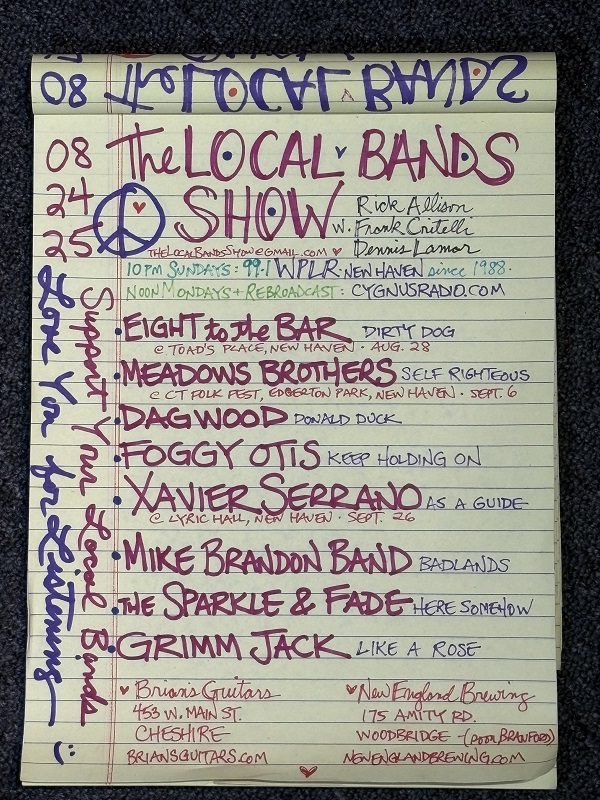 08 the LOCAL BANDS
08 The LOCAL BANDS
24 SHOW w. Rick Allison
25 Frank Critelli
Dennis Lamar
THELOCALBANDSSHOW@GMAIL.COM
10 PM SUNDAYS: 99.1 WPLR NEW HAVEN since 1988.
NOON MONDAYS + REBROADCAST: CYGNUSRADIO.COM
EIGHT to the BAR DIRTY DOG
@ TOAD'S PLACE, NEW HAVEN · AUG. 28
MEADOWS BROTHERS SELF RIGHTEOUS
@ CT FOLK FEST, EDGERTON PARK, NEW HAVEN · SEPT. 6
DAGWOOD DONALD DUCK
FOGGY OTIS KEEP HOLDING ON
XAVIER SERRANO AS A GUIDE
@ LYRIC HALL, NEW HAVEN · SEPT. 26
MIKE BRANDON BAND BADLANDS
THE SPARKLE & FADE HERE SOMEHOW
GRIMM JACK LIKE A ROSE
Support Your Local Bands
Love You for Listening :)
Brian's Guitars
453 W. MAIN ST.
CHESHIRE
BRIANSGUITARS.COM
New England Brewing
175 AMITY RD.
WOODBRIDGE (AOOK BRANFORD)
NEWENGLANDBREWING.COM